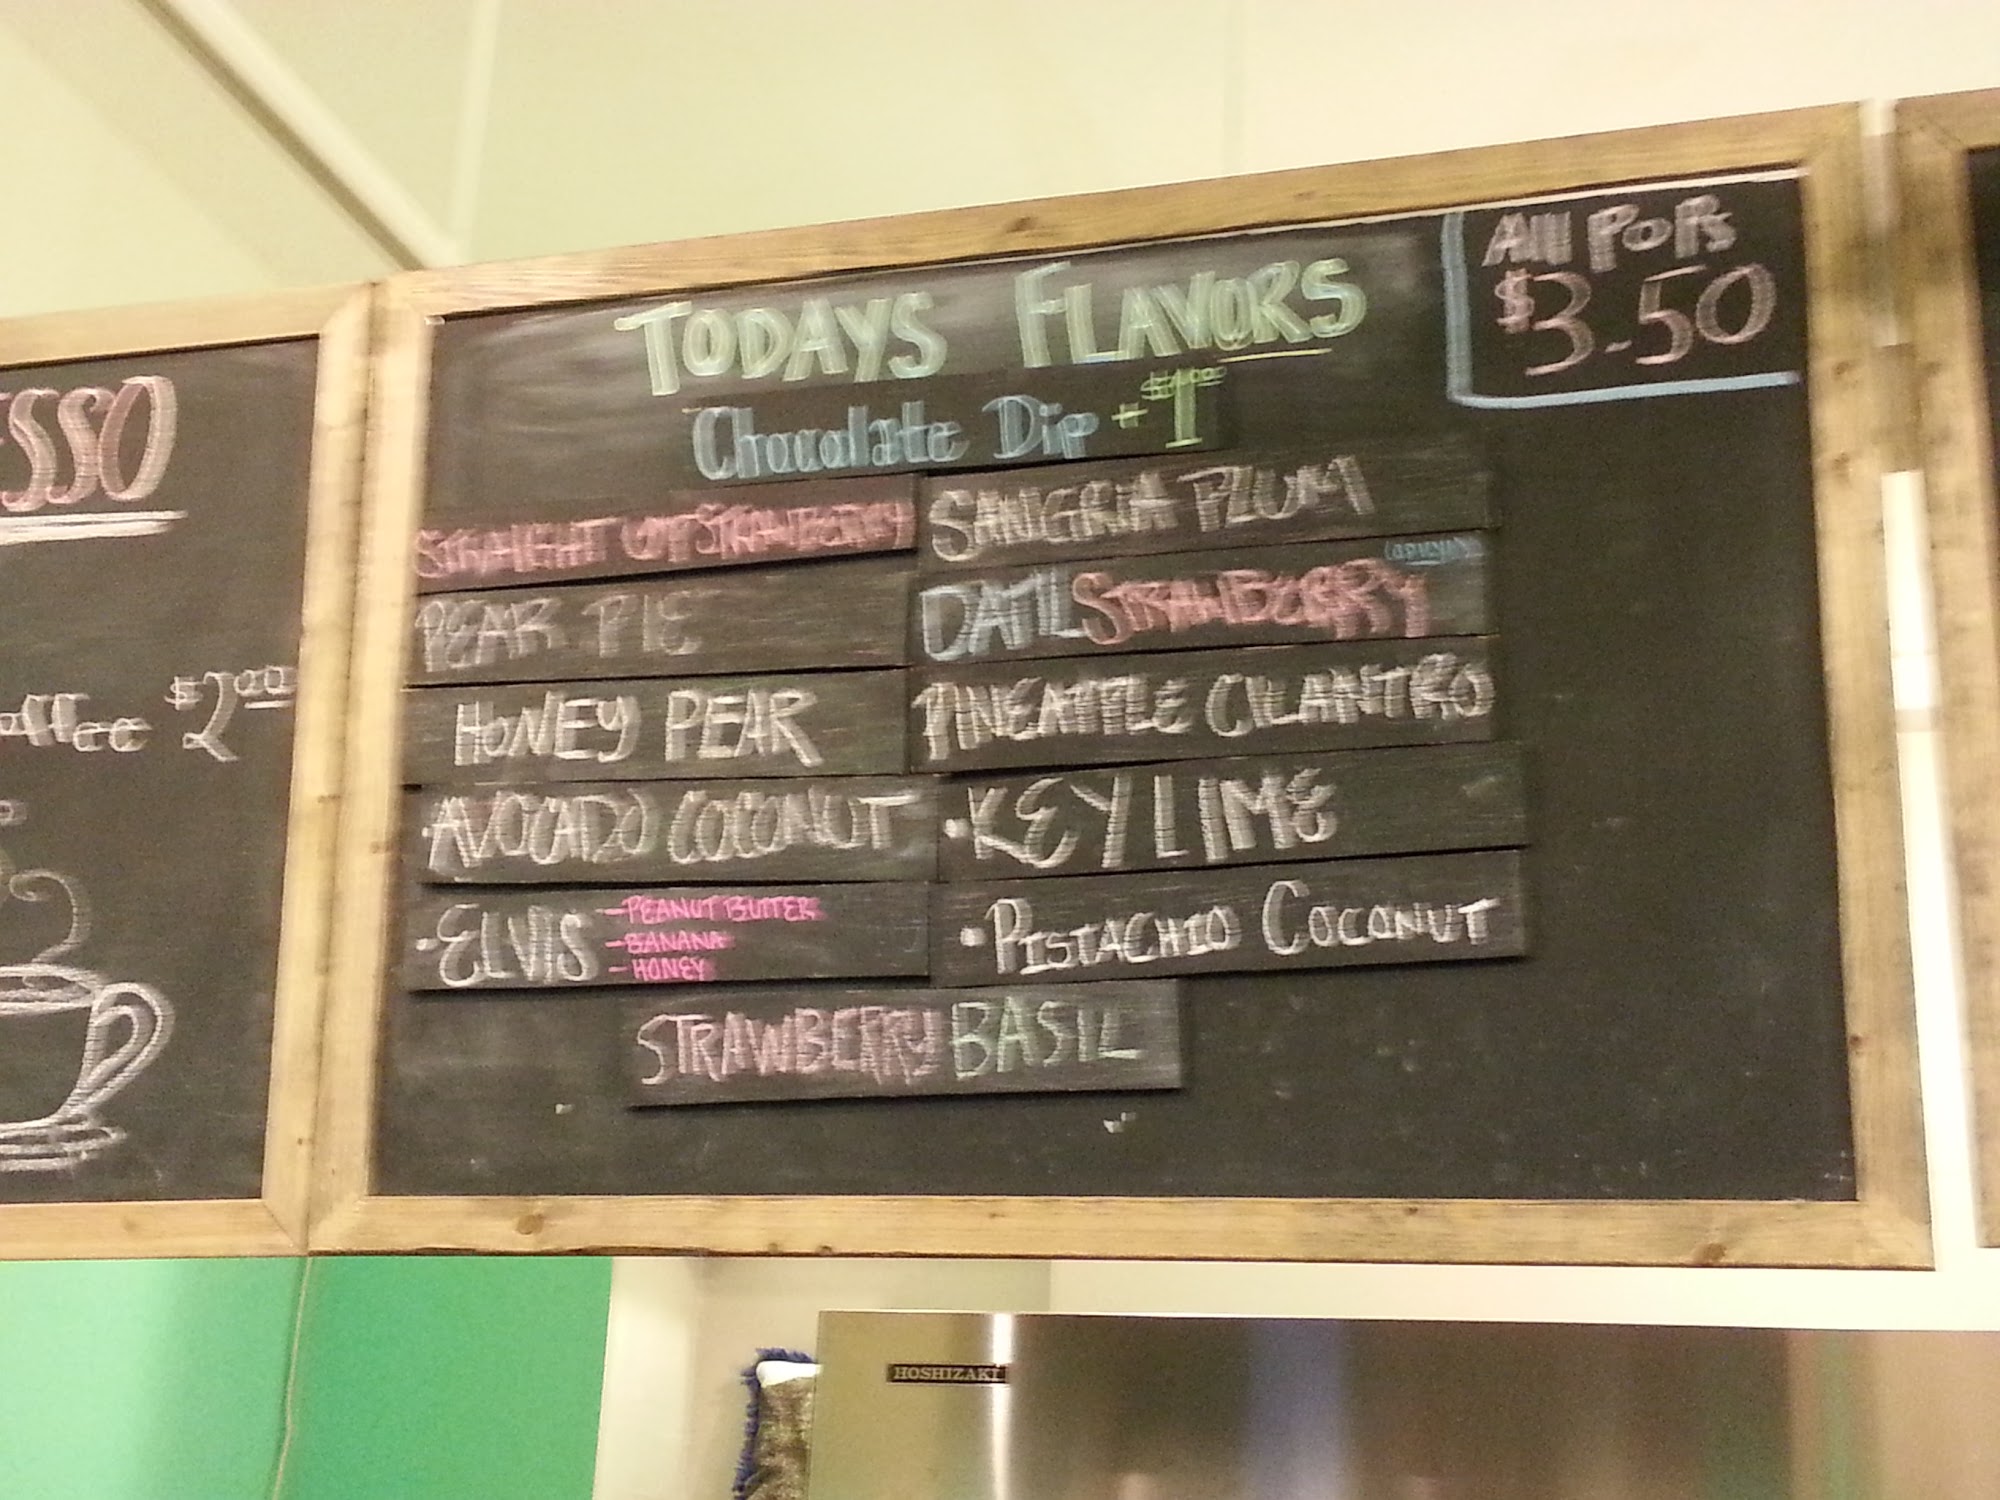 TODAYS FLAVORS
Chocolate Dip + $1
All POPs
$3.50
STRAIGHT UP STRAWBERRY
SANGRIA PLUM
PEAR PIE
DATIL STRAWBERRY
HONEY PEAR
PINEAPPLE CILANTRO
·AVOCADO COCONUT
·KEY LIME
·ELVIS
-PEANUT BUTTER
-BANANA
-HONEY
·PISTACHIO COCONUT
STRAWBERRY BASIL
$2.00
HOSHIZAKI